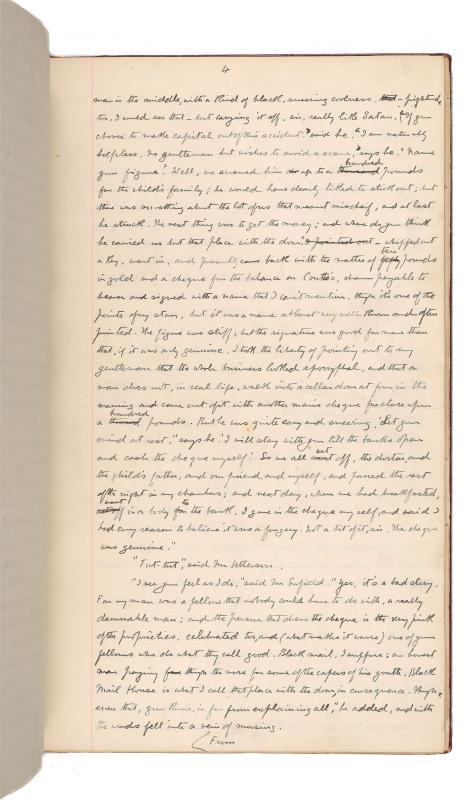 4
man in the middle, with a kind of black, sneering coolness – frightened
too, I could see that – but carrying it off, sir, really like Satan. "If you
choose to make capital out of this accident," said he. "I am naturally
helpless. No gentleman but wishes to avoid a scene," says he. "Name
your figure." Well, we screwed him up to a hundred pounds
for the child's family; he would have clearly liked to stick out; but
there was something about the lot of us that meant mischief, and at last
he struck. The next thing was to get the money; and where do you think
he carried us but that place with the door? – whipped out
a key, went in, and presently came back with the matter of ten pounds
in gold and a cheque for the balance on Coutts's, drawn payable to
bearer and signed with a name that I can't mention, though it's one of the
points of my story, but it was a name at least very well known and often
printed. The figure was stiff; but the signature was good for more than
that, if it was only genuine. I took the liberty of pointing out to my
gentleman that the whole business looked apocryphal, and that a
man does not, in real life, walk into a cellar door at four in the
morning and come out of it with another man's cheque for close upon
a hundred pounds. But he was quite easy and sneering. "Set your
mind at rest," says he. "I will stay with you till the banks open
and cash the cheque myself." So we all set off, the doctor, and
the child's father, and our friend and myself, and passed the rest
of the night in my chambers; and next day, when we had breakfasted,
went in a body to the bank. I gave in the cheque myself, and said I
had every reason to believe it was a forgery. Not a bit of it, sir. The cheque
was genuine."
"Tut-tut," said Mr Utterson.
"I see you feel as I do," said Mr Enfield. "Yes, it's a bad story.
For my man was a fellow that nobody could have to do with, a really
damnable man; and the person that drew the cheque is the very pink
of the proprieties, celebrated too, and (what makes it worse) one of your
fellows who do what they call good. Black mail, I suppose; an honest
man paying through the nose for some of the capers of his youth. Black
Mail House is what I call that place with the door, in consequence. Though
even that, you know, is far from explaining all," he added, and with
the words fell into a vein of musing.
From